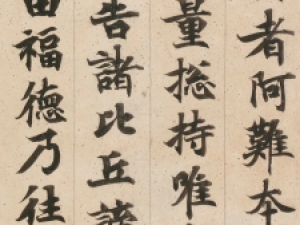 者阿難本
量捴持唯
告諸比丘諸
福德乃往